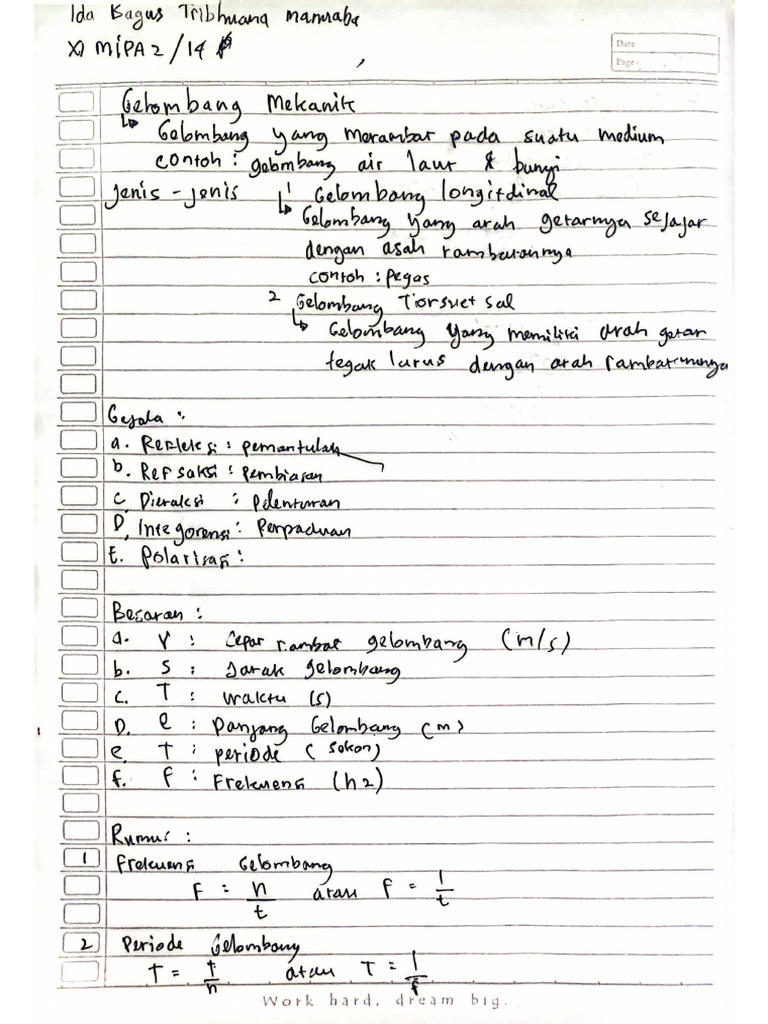 Ida Bagus Tribhuana manuaba
XI MIPA 2 / 14
Date :
Page :
Gelombang Mekanik
↳ Gelombang yang merambat pada suatu medium
contoh : gelombang air laut & bunyi
Jenis - Jenis 1 Gelombang longitdinal
↳ Gelombang yang arah getarnya sejajar
dengan asah rambatannya
contoh : pegas
2 Gelombang Torsvet sal
↳ Gelombang yang memiliki arah getar
tegak lurus dengan arah rambatannya
Gejala :
a. Refleksi : pemantulan
b. Refsaksi : pembiasan
c. Dieraksi : pelenturan
D. Integorensi : Perpaduan
E. Polarisasi :
Besaran :
a. V : Cepat rambat gelombang (m/s)
b. S : Jarak gelombang
c. T : waktu (s)
D. e : Panjang Gelombang (m)
e. T : periode (sokon)
f. f : Frekuensi (hz)
Rumus :
1 Frekuensi Gelombang
F = n/t atau f = 1/t
2 Periode Gelombang
T = t/n atau T = 1/f
Work hard, dream big.